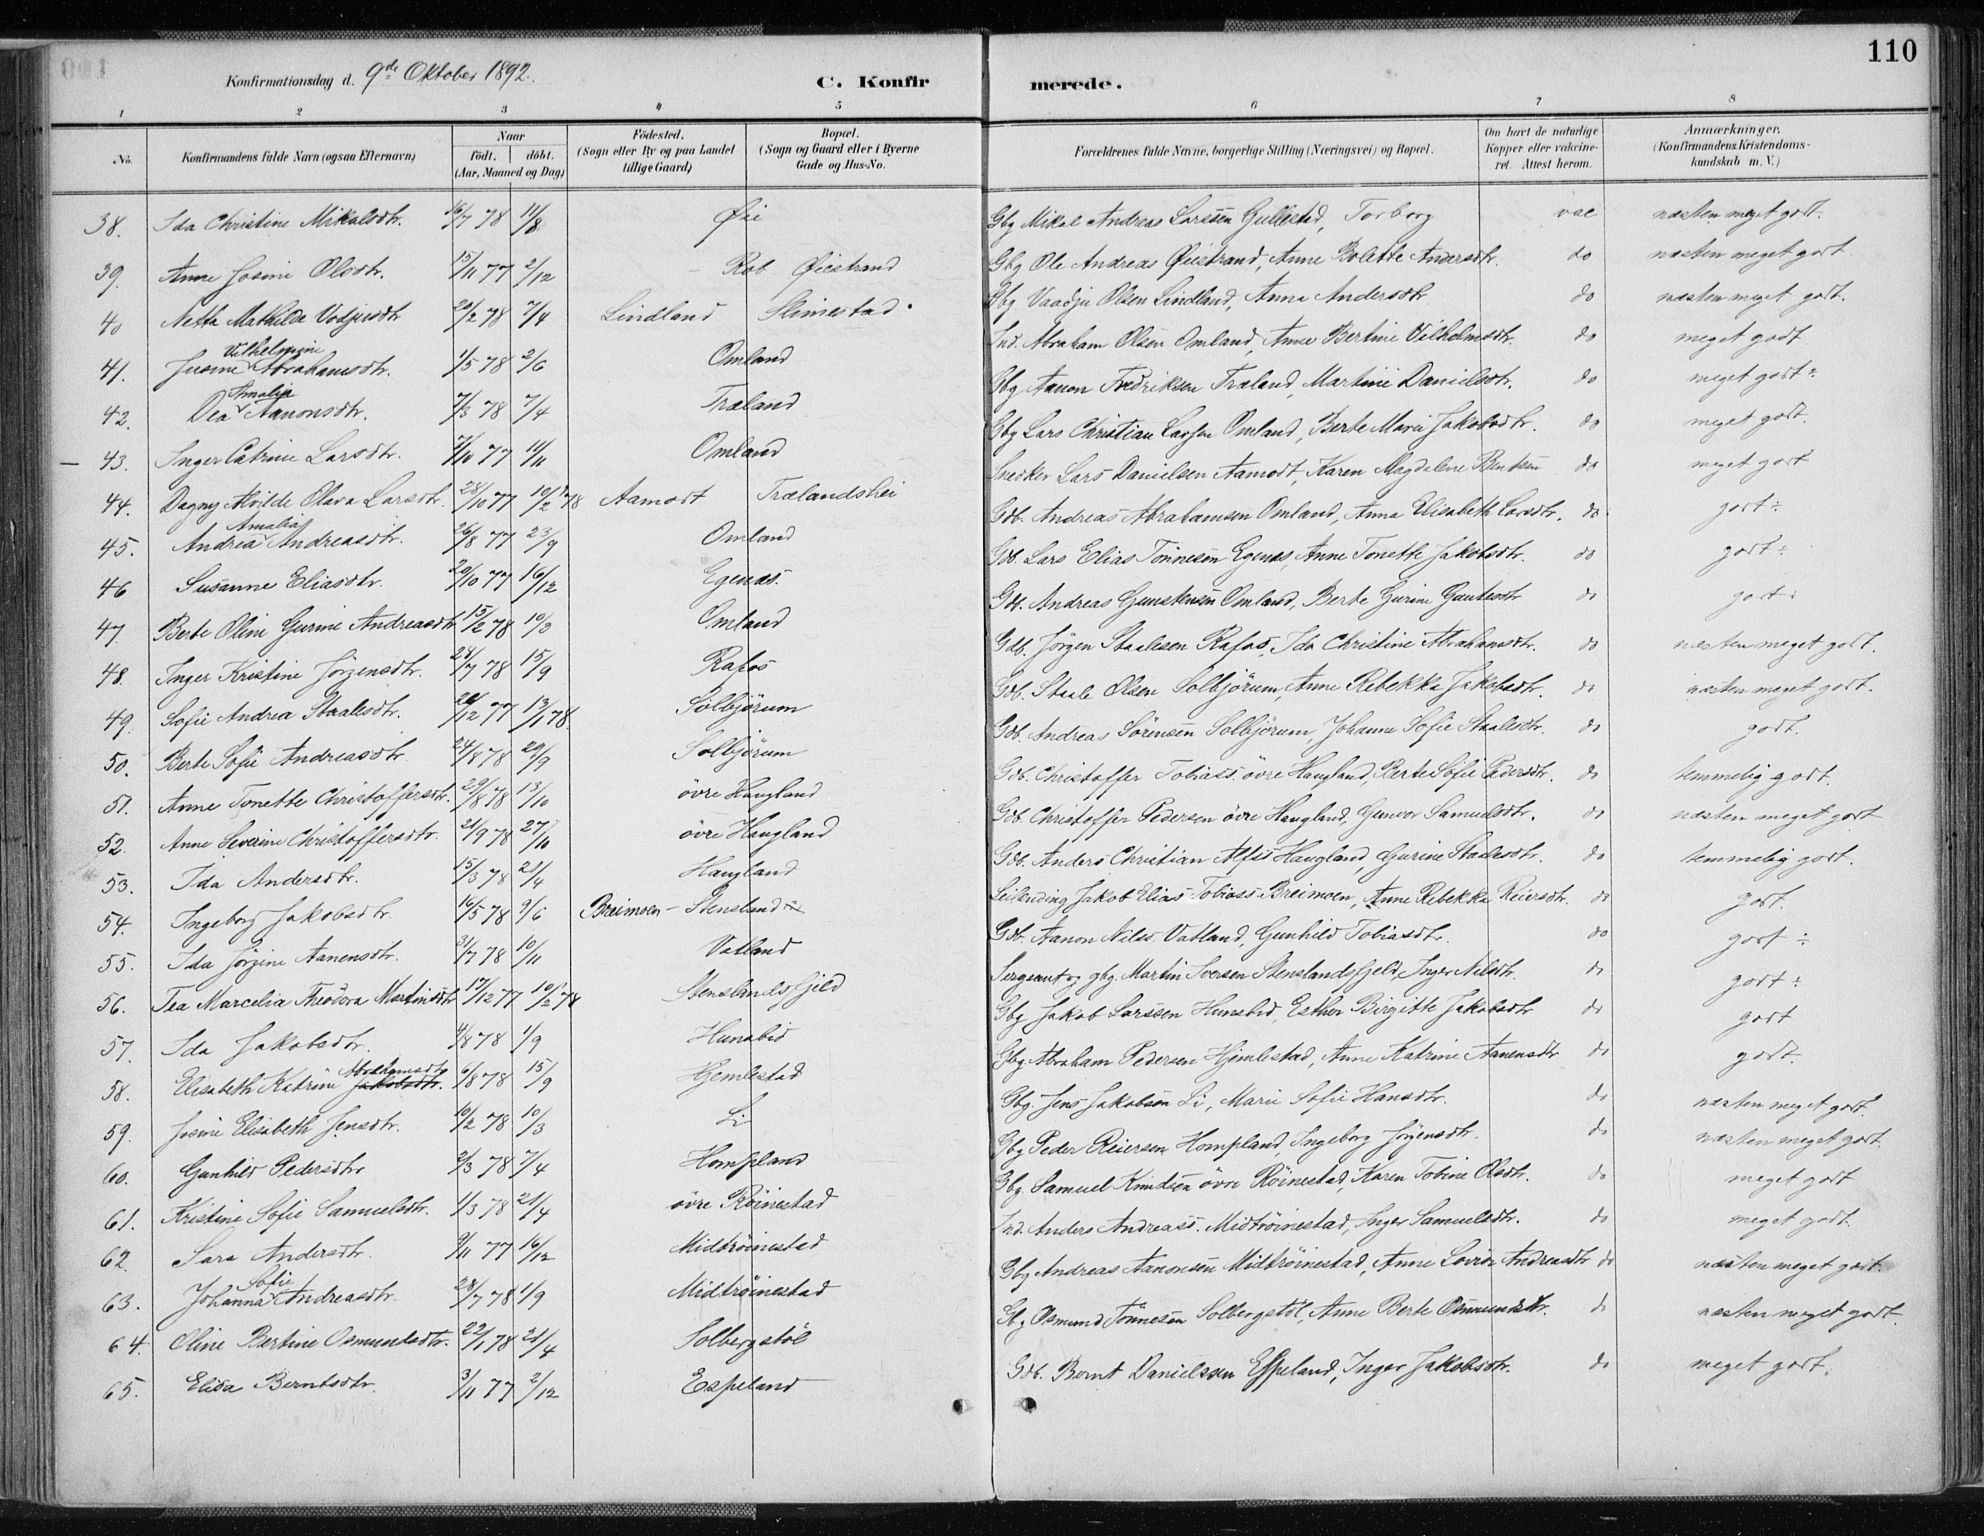 110
Konfirmationsdag d. 9de Oktober 1892.
C. Konfirmerede.
1 2 3 4 5 6 7 8
No. | Konfirmandens fulde Navn (ogsaa Efternavn) | Naar født. | døbt. (Aar, Maaned og Dag) | Födested. (Sogn eller By og paa Landet tillige Gaard) | Bopæl. (Sogn og Gaard eller i Byerne Gade og Hus-No. | Forældrenes fulde Navne, borgerlige Stilling (Næringsvei) og Bopæl. | Om havt de naturlige Kopper eller vakcineret. Attest herom. | Anmærkninger. (Konfirmandens Kristendomskundskab m. V.)
38. Ida Christine Mikalsdtr. 16/7 78 11/8 Øie Gbg Mikal Andreas Larssen Gullestad, Torborg vac næsten meget godt.
39. Anne Josine Olsdtr. 15/11 77 2/12 Rob Øiestrand Gbg Ole Andreas Øiestrand, Anne Bolette Andersdtr. do næsten meget godt
40 Netta Mathilde Vodjusdtr 20/2 78 7/4 Lindland Slimestad Gbg Vaadju Olsen Lindland, Anna Andersdtr. do næsten meget godt.
41. Jusine Vilhelmine Abrahamsdtr. 1/5 78 2/6 Omland Ind. Abraham Olsen Omland, Anne Bertine Vilhelmsdtr. do meget godt
42. Dea Amalia Aanonsdtr. 7/3 78 7/4 Træland Gbg Aanon Fredriksen Træland, Martine Danielsdtr. do meget godt÷
43. Inger Catrine Larsdtr. 7/10 77 11/11 Omland Gbg Lars Christian Larsen Omland, Berte Marie Jakobsdtr. do meget godt.
44. Dagny Alvilde Olava Larsdtr. 28/10 77 10/2 78 Aamodt Trælandshei Snedker Lars Danielsen Aamodt, Karen Magdelene Bentsen do meget godt
45. Andrea Amalia Andreasdtr. 26/8 77 23/9 Omland Gdb. Andreas Abrahamsen Omland, Anna Elisabeth Larsdtr. do godt÷
46 Susanne Eliasdtr. 20/10 77 16/12 Egenæs. Gdb. Lars Elias Tönnesen Egenæs, Anne Tonette Jakobsdtr. do godt÷
47. Berte Oline Gurine Andreasdtr 15/2 78 10/3 Omland Gdb. Andreas Gunstensen Omland, Berte Gurine Gautesdtr do godt÷
48. Inger Kristine Jörgensdtr. 28/7 78 15/9 Rafos Gdb. Jörgen Staalesen Rafos, Ida Christine Abrahamsdtr. do næsten meget godt.
49. Sofie Andrea Staalesdtr. 12 77 13/1 78. Solbjörum Gdb. Staale Olsen Solbjörum, Anne Rebekka Jakobsdtr. do næsten meget godt.
50. Berte Sofie Andreasdtr 24/8 78 29/9 Solbjörum Gdb. Andreas Sörensen Solbjörum, Johanne Sofie Staalesdtr. do godt.
51. Anne Tonette Christoffersdtr. 29/8 78 13/10 övre Haugland Gdb. Christoffer Tobiass. övre Haugland, Berte Sofie Pedersdtr. do temmelig godt.
52. Anne Severine Christoffersdtr. 21/9 78 27/10 övre Haugland Gdb. Christoffer Pedersen övre Haugland, Gunvor Samuelsdtr. do næsten meget godt
53. Ida Andersdtr. 15/3 78 22/4 Haugland Gdb. Anders Christian Alfss Haugland, Gurine Staalesdtr. do temmelig godt.
54. Ingeborg Jakobsdtr. 16/5 78 9/6 Breimoen - Stensland Leilending Jakob Elias Tobiass. Breimoen, Anne Rebekka Reiersdtr. do godt.
55. Ida Jörgine Aanensdtr. 31/7 78 10/11 Vatland Gdb. Aanon Nilss. Vatland, Gunhild Tobiasdtr. do godt÷
56. Tea Marcelia Theodora Martinsdtr 17/12 77 10/2 78 Stenslandsfjeld Sergeant og gbg. Martin Iversen Stenslandsfjeld, Inger Nilsdtr. do godt÷
57. Ida Jakobsdtr. 4/8 78 1/9 Hunsbed Gbg Jakob Larssen Hunsbed, Esther Birgitte Jakobsdtr do godt
58. Elisabeth Katrine Abrahamsdtr Jakobsdtr. 6/8 78 15/9 Hjemlestad Gbg Abraham Pedersen Hjemlestad, Anne Katrine Aanensdtr do godt.
59. Josine Elisabeth Jensdtr. 10/2 78 10/3 Li Gbg. Jens Jakobsen Li, Marie Sofie Hansdtr. do næsten meget godt.
60. Gunhild Pedersdtr 3/3 78 7/4 Hompland Gbg Peder Reiersen Hompland, Ingeborg Jörgensdtr. do næsten meget godt.
61. Kristine Sofie Samuelsdtr. 1/3 78 21/4 övre Röinestad Gbg. Samuel Knudsen övre Röinestad, Karen Tobine Olsdtr. do meget godt
62. Sara Andersdtr. 9/11 77 16/12 Midtröinestad Ind. Anders Andreass. Midtröinestad, Inger Samuelsdtr. do meget godt.
63. Johanna Sofie Andreasdtr. 28/7 78 1/9 Midtröinestad Gbg Andreas Aanonsen Midtröinestad, Anne Lovise Andreasdtr do næsten meget godt.
64. Oline Bertine Osmundsdtr. 22/1 78 21/4 Solbergstöl Gbg Osmund Tönnesen Solbergstöl, Anne Berte Osmundsdtr. do næsten meget godt.
65. Elida Berntsdtr. 3/11 77 2/12 Espeland Gdb. Bernt Danielssen Espeland, Inger Jakobsdtr. do meget godt.